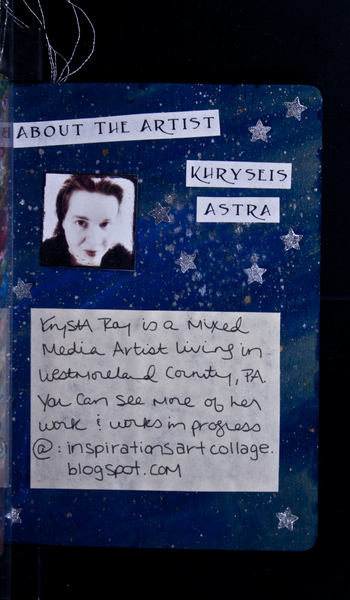 ABOUT THE ARTIST
KHRYSEIS
ASTRA
Krysta Ray is a Mixed
Media Artist living in
Westmoreland County, PA.
You Can see More of her
work & works in progress
@: inspirationsartcollage.
blogspot.com